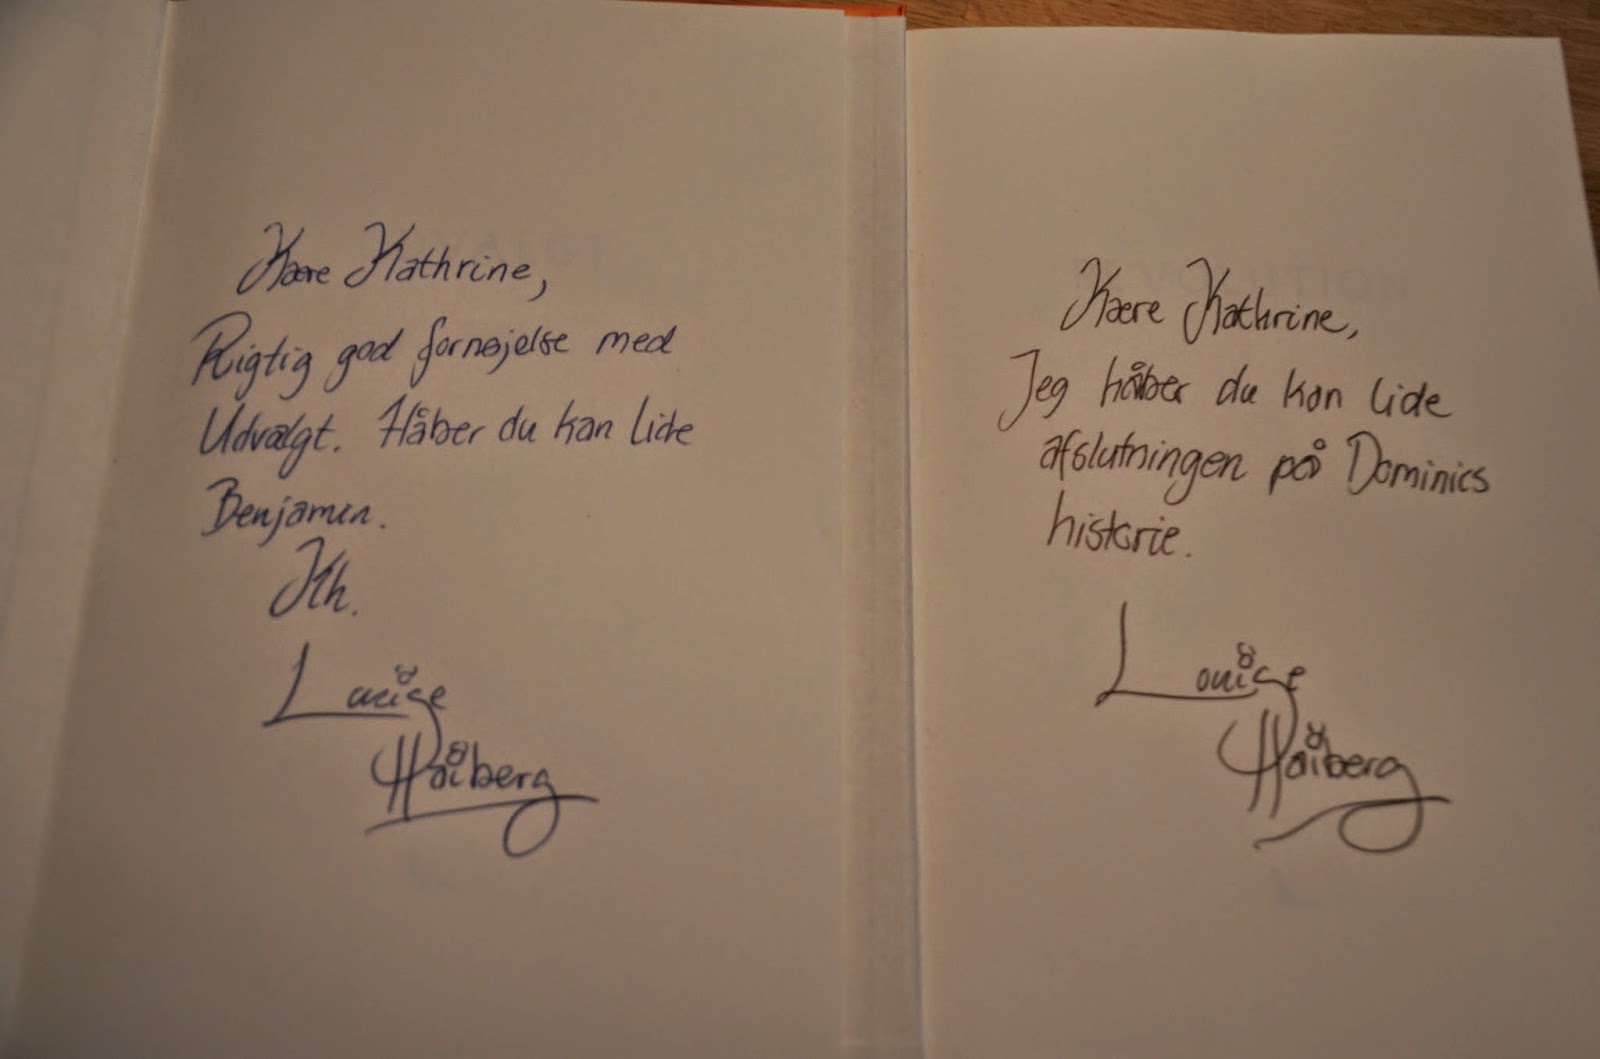 Kære Kathrine,
Rigtig god fornøjelse med
Udvalgt. Håber du kan lide
Benjamin.
Kh.
Louise
Haiberg
Kære Kathrine,
Jeg håber du kan lide
afslutningen på Dominics
historie.
Louise
Haiberg